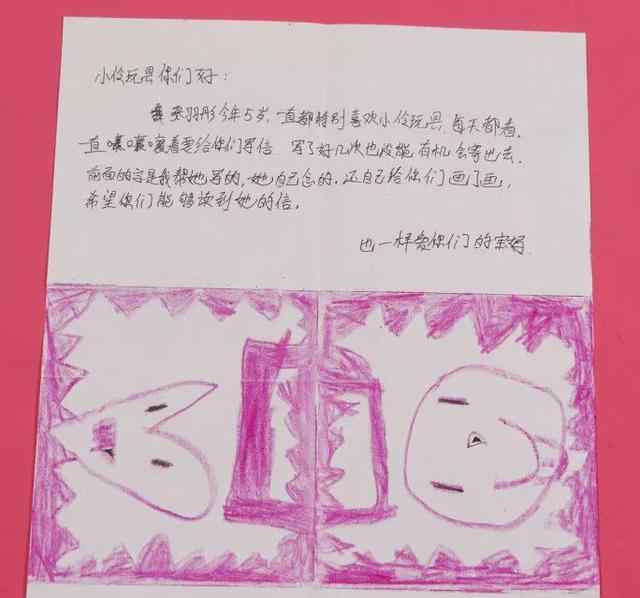 小伶玩具你们好：
张羽彤今年5岁，一直都特别喜欢小伶玩具，每天都看，
一直嚷嚷着要给你们写信，写了好几次也没能有机会寄出去，
前面的字是我帮她写的，她自己念的，还自己给你们画了画，
希望你们能够读到她的信。
也一样爱你们的宋好